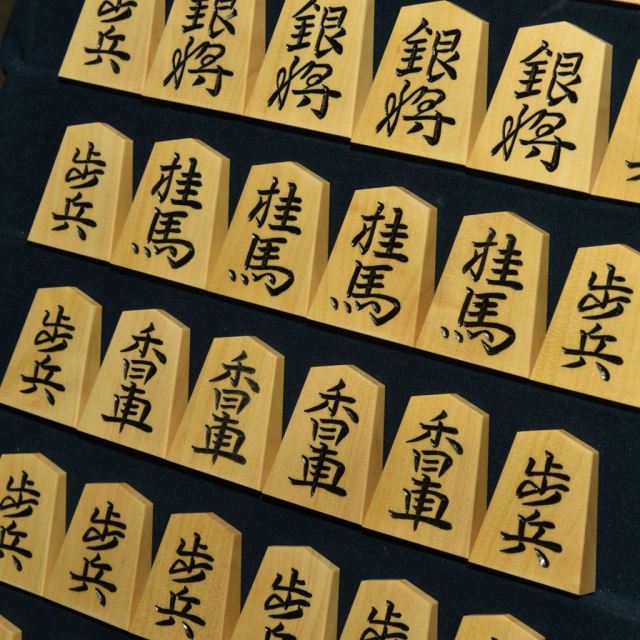 歩兵
銀将
銀将
銀将
銀将
歩兵
桂馬
桂馬
桂馬
桂馬
歩兵
歩兵
香車
香車
香車
香車
歩兵
歩兵
歩兵
歩兵
歩兵
歩